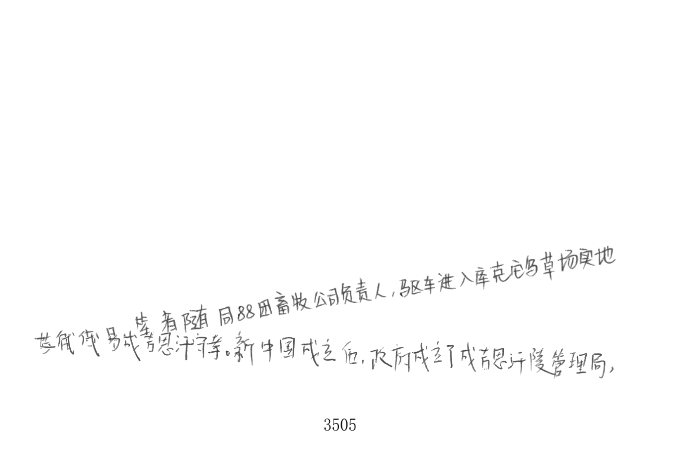 笔者随同88团畜牧公司负责人,驱车进入库克它乌草场实地
其犹像易成吉思汗守孝。新中国成立后,政府成立了成吉思汗陵管理局,
3505